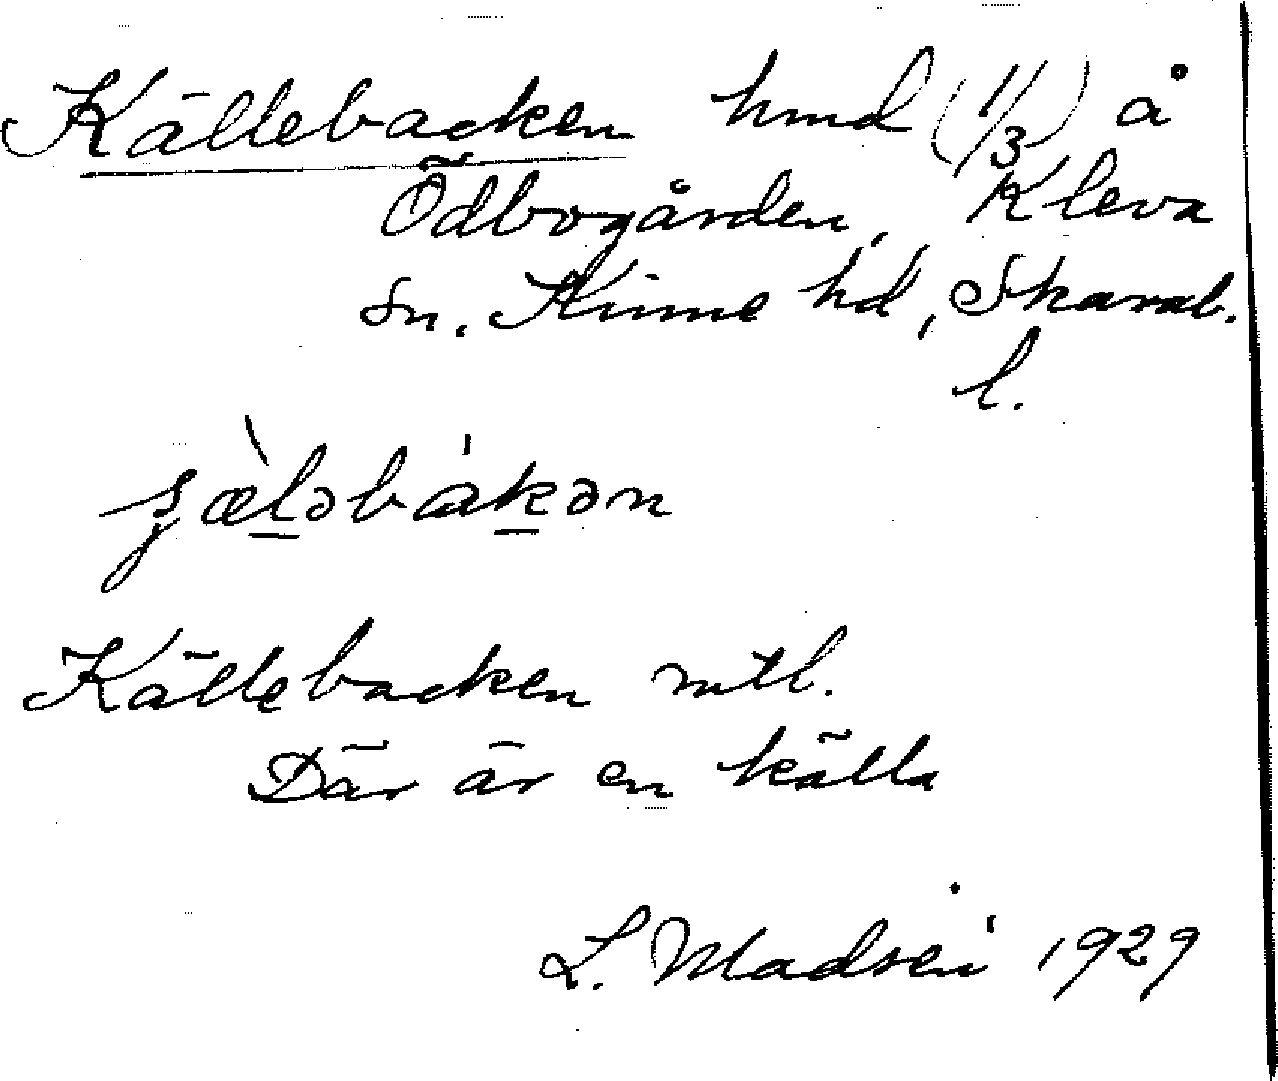 Källebacken hmd (1/3) å
Ödbogården, Kleva
sn. Kinne hd, Skarab.
l.
Källebacken mtl.
Där är en källa
L. Madsén 1929